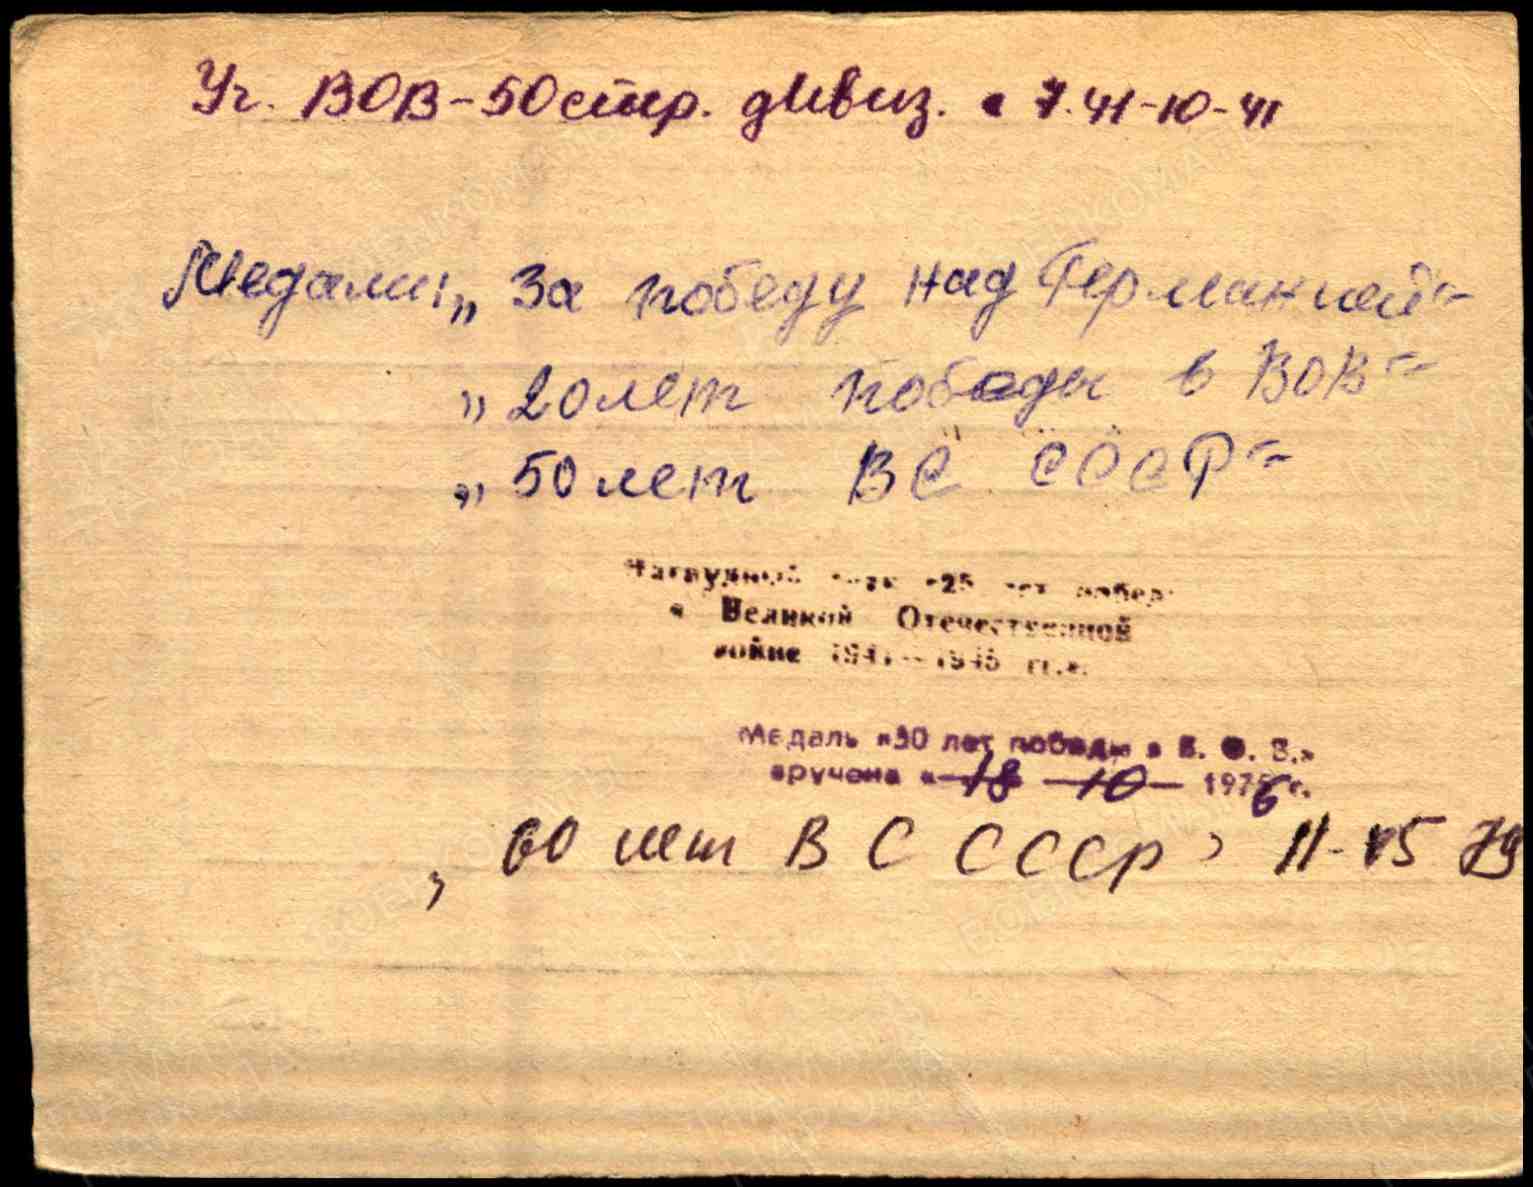 Уч. ВОВ - 50 стр. дивиз. с 7.41-10-41
Медали: „За победу над Германией"
„20 лет победы в ВОВ"
„50 лет ВС СССР"
Нагрудной знак «25 лет побед
в Великой Отечественной
войне 1941—1945 гг.».
Медаль «30 лет победы в В. О. В.»
вручена «18 10 1976 г.
„60 лет ВС СССР" 11-15 79